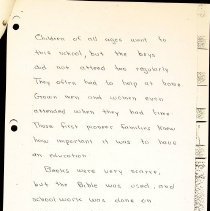 Children of all ages went to
this school, but the boys
did not attend too regularly
They often had to help at home
Grown men and women even
attended when they had time
Those first pioneer families knew
how important it was to have
an education
Books were very scarce,
but the Bible was used, and
school work was done on